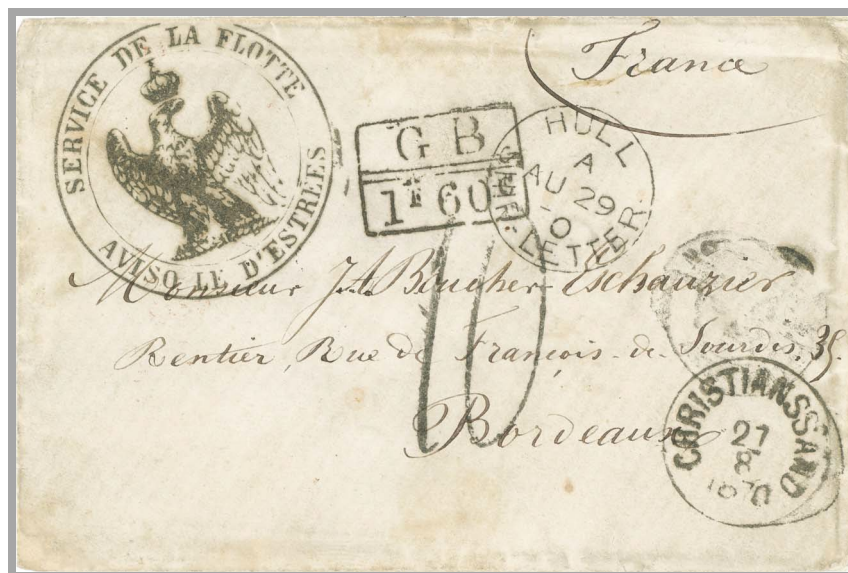 SERVICE DE LA FLOTTE
AVISO LE D'ESTRÉES
France
G B
1F 60
HULL
A
AU 29
0
SHIP-LETTER
10
Monsieur J.A. Boucher-Eschauzier
Rentier, Rue de François-de-Sourdis. 35.
Bordeaux
CHRISTIANSSAND
27
8
1870